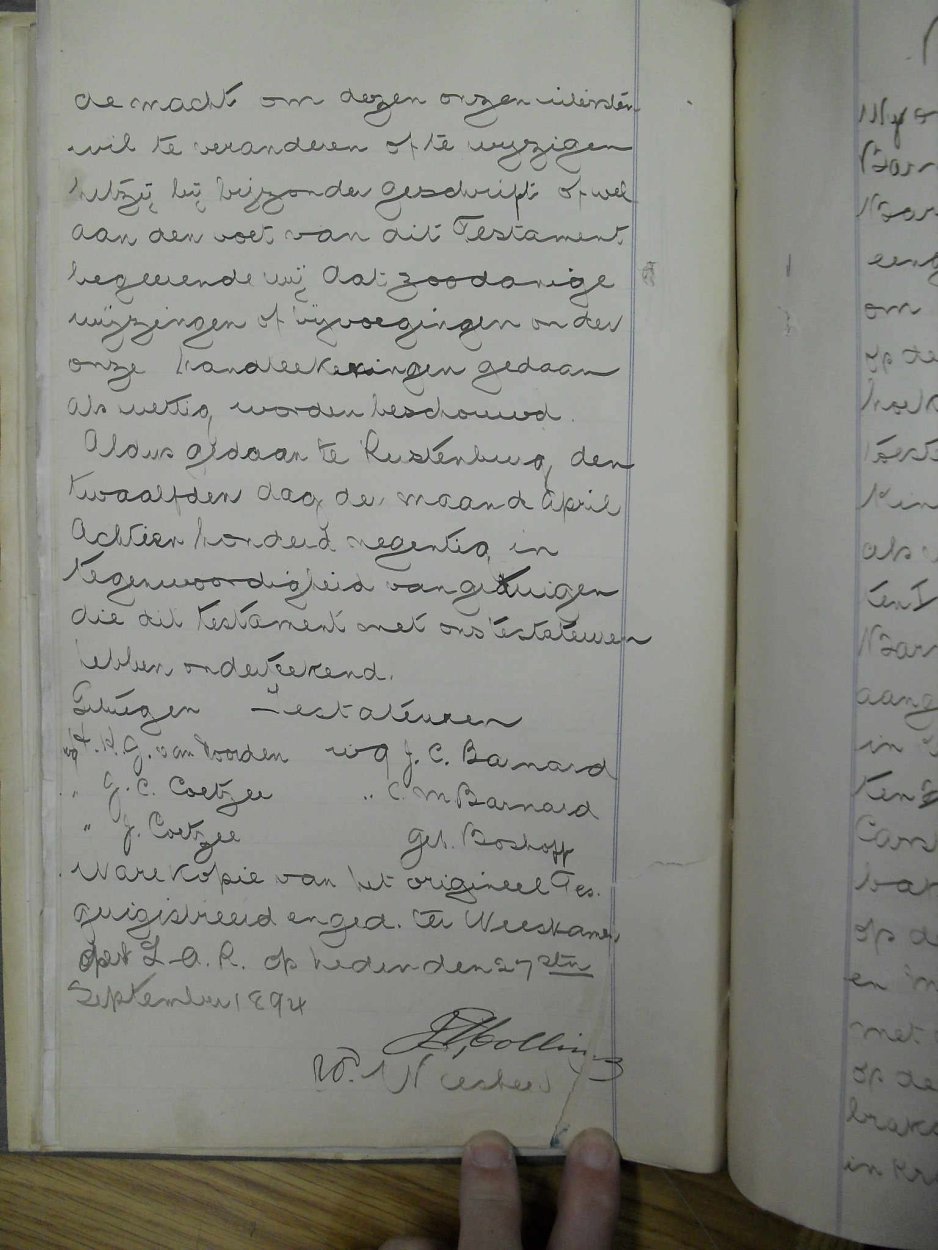 de macht om dezen onzen uitersten
wil te veranderen of te wyzigen
hetzij bij bijzonder geschrift of wel
aan den voet van dit Testament
begeerende wij dat zoodanige
wijzingen of bijvoegingen onder
onze handteekeningen gedaan
als wettig worden beschouwd.
Aldus gedaan te Rustenburg, den
twaalfden dag der maand April
Achtien honderd negentig in
tegenwoordigheid van getuigen
die dit testament met ons testateuren
hebben onderteekend.
Getuigen Testateuren
wg van Voorden wg J. C. Barnard
" J. C. Coetzee " C. M. Barnard
" J. Coetzee get. Boshoff
Ware Kopie van het origineel Tes.
geregistreerd en ged. ter Weeskamer
der Z. A. R. op heden den 27sten
September 1894
Wd. Weesheer
My
Bar
Bar
eenig
om
op de
als
Bar
aang
in
op de
en
met
op de
in